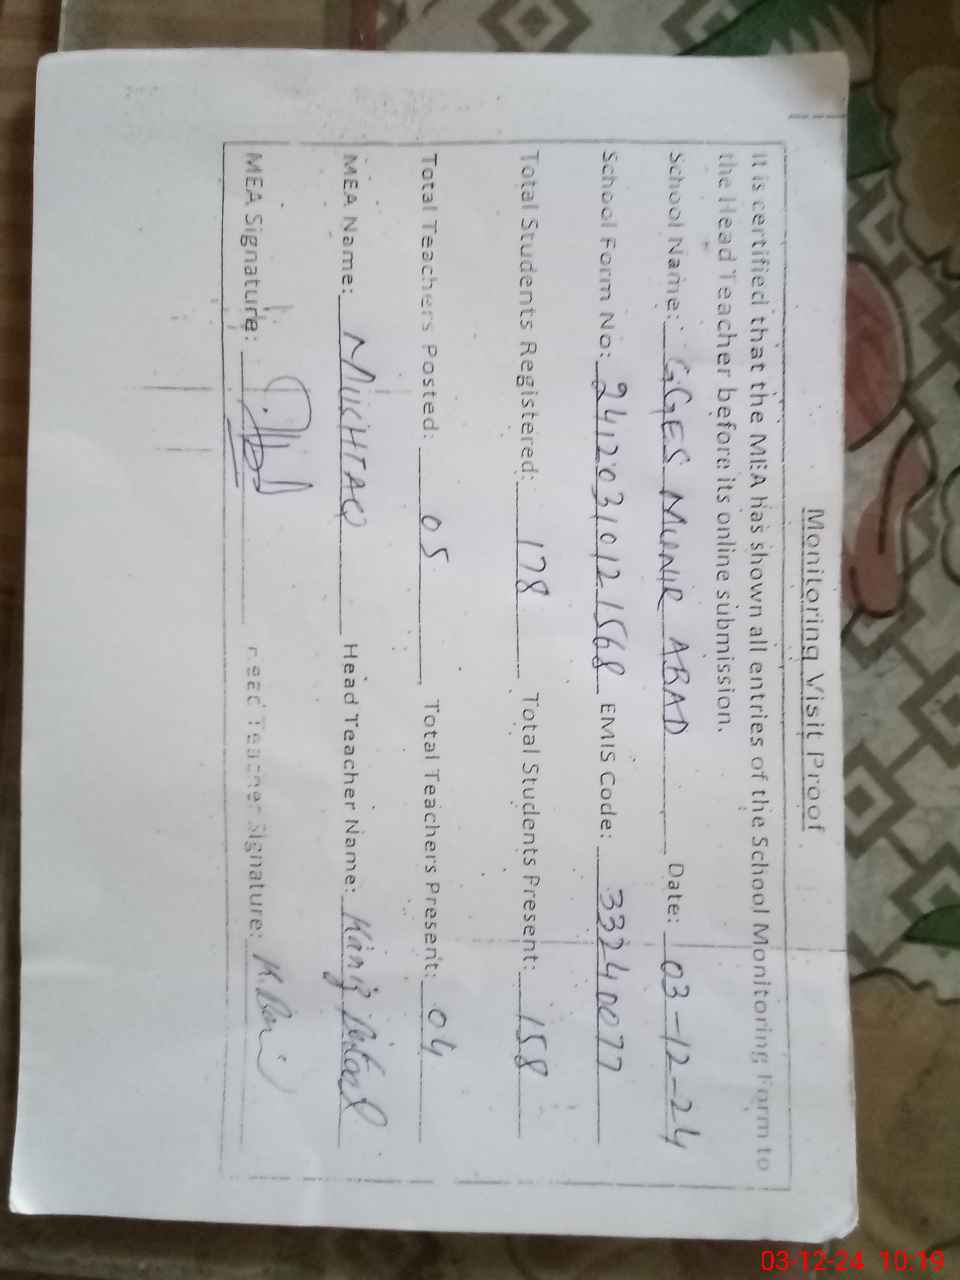 Monitoring Visit Proof
It is certified that the MEA has shown all entries of the School Monitoring Form to
the Head Teacher before its online submission.
School Name: GGES MUNIR ABAD Date: 03-12-24
School Form No: 24120310121568 EMIS Code: 33240077
Total Students Registered: 178 Total Students Present: 158
Total Teachers Posted: 05 Total Teachers Present: 04
MEA Name: MUSHTAQ Head Teacher Name: Kaniz
MEA Signature: Head Teacher Signature:
03-12-24 10:19